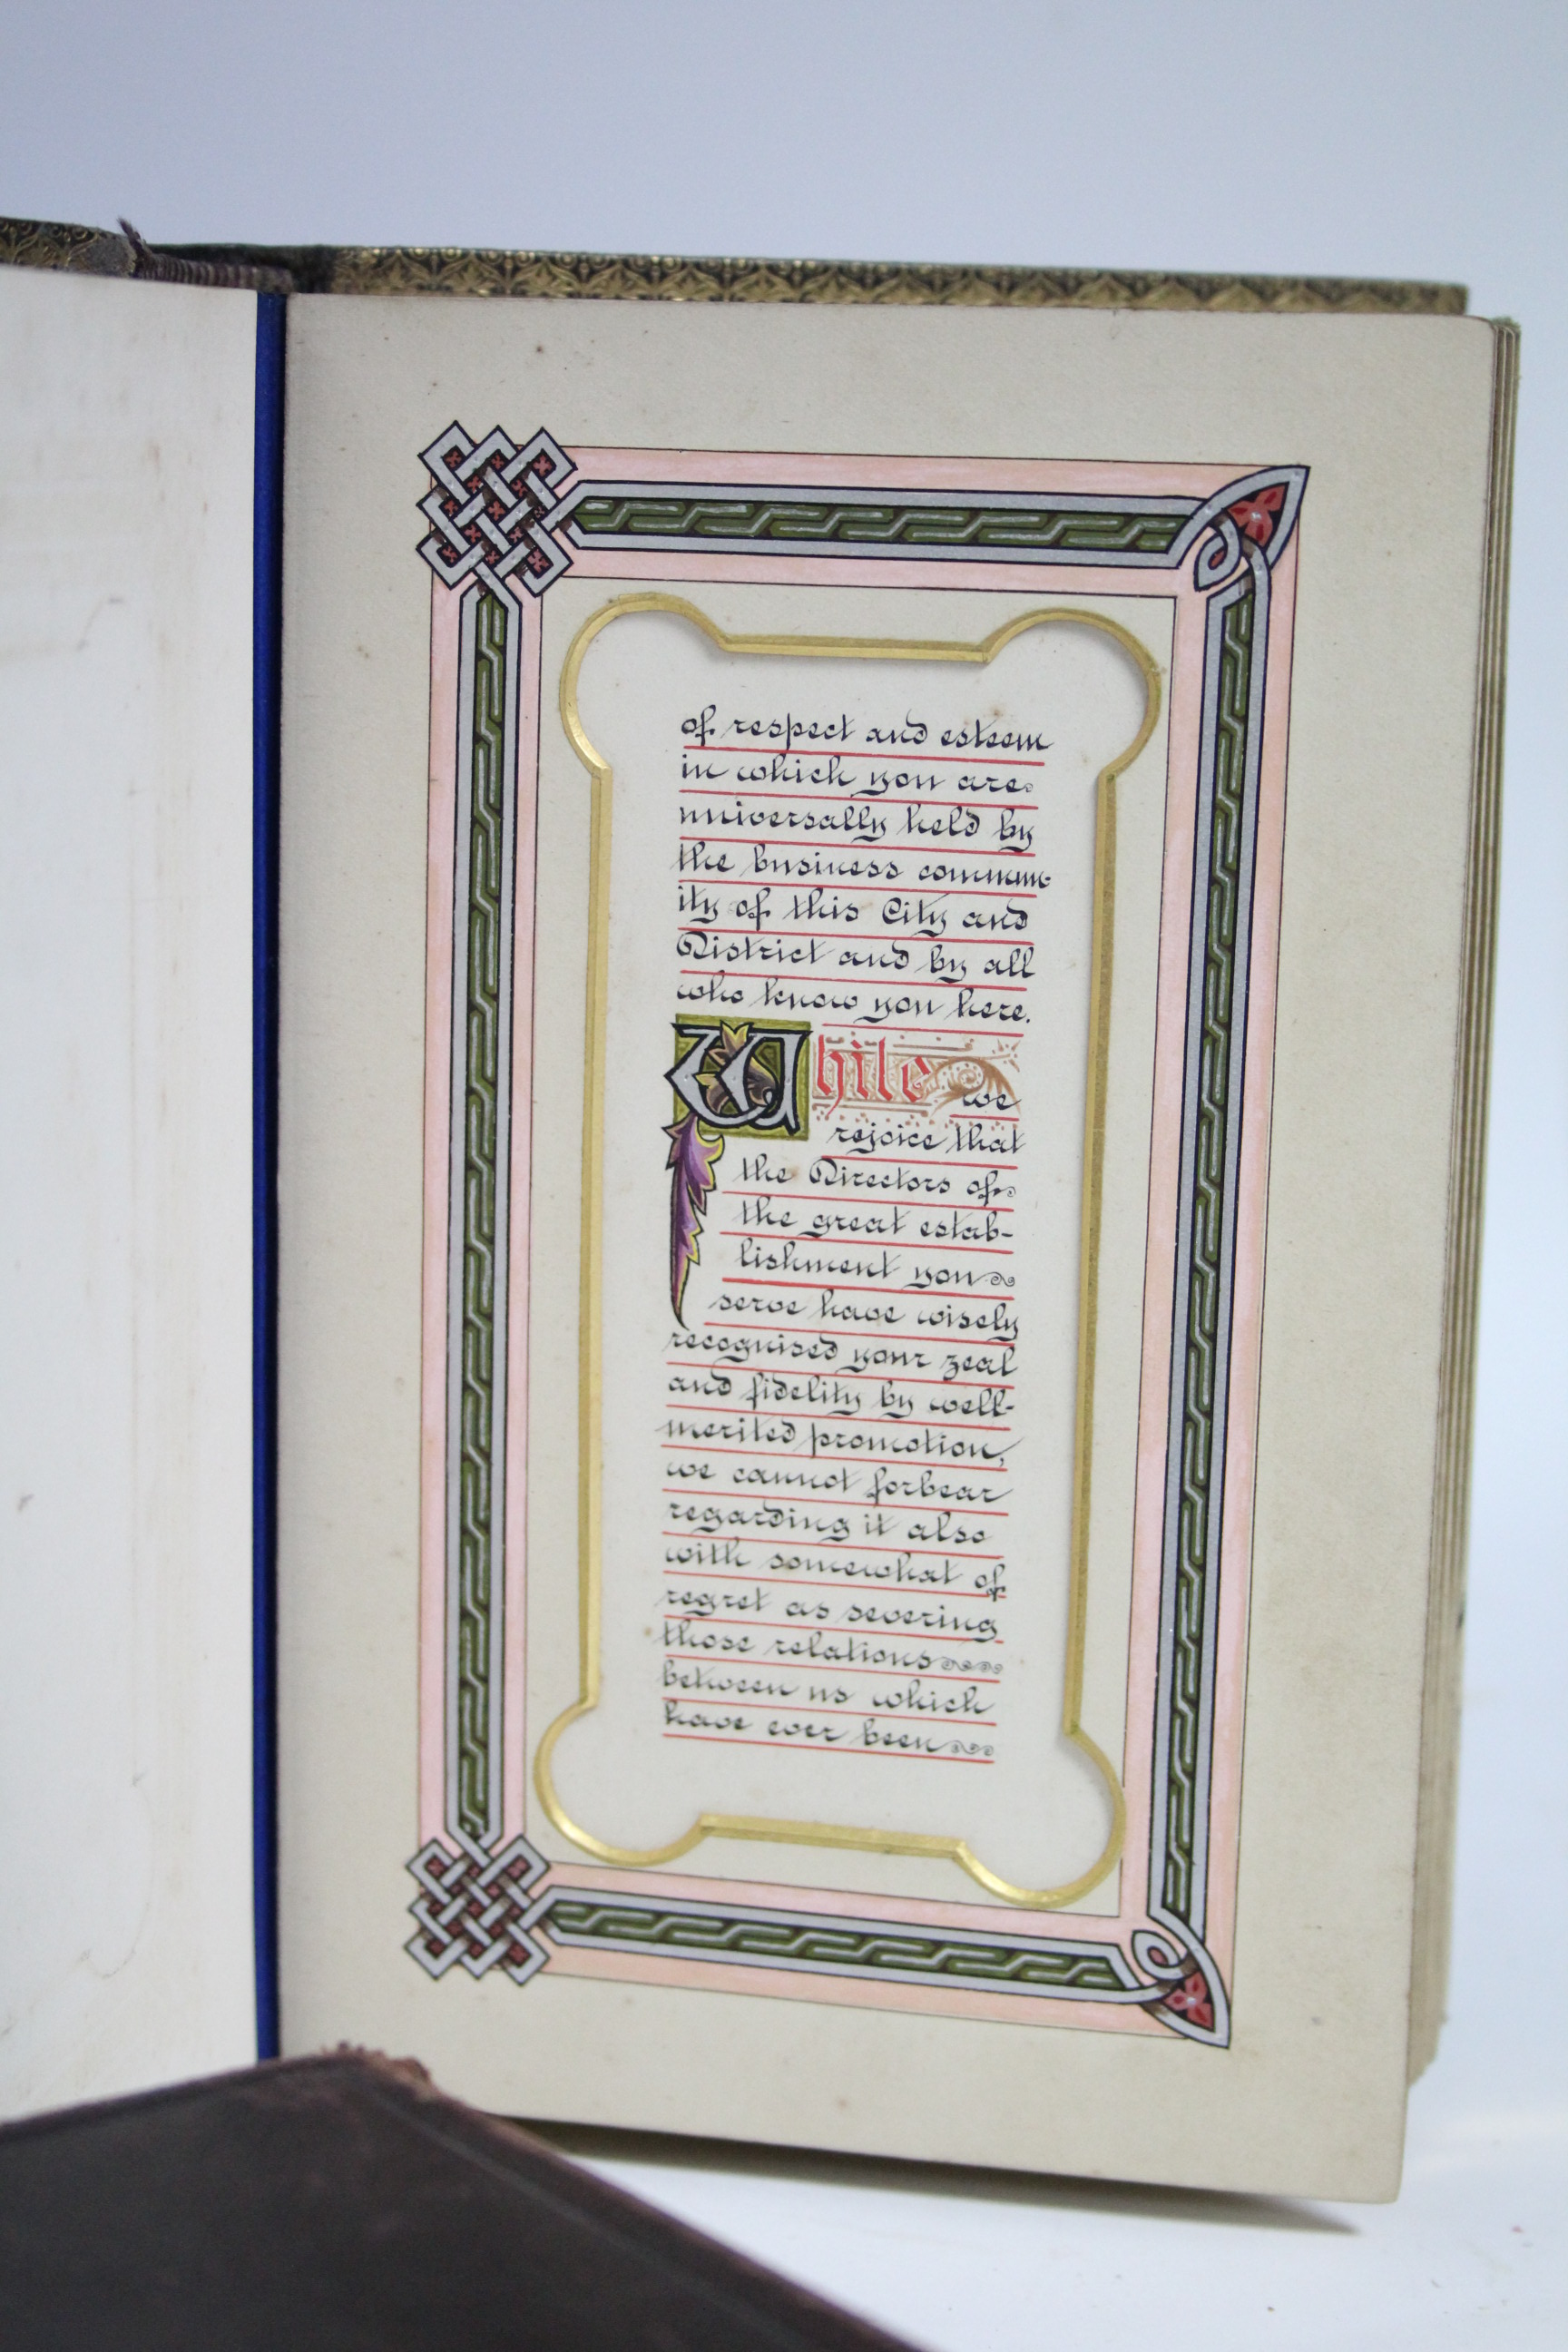 of respect and esteem
in which you are
universally held by
the business commun-
ity of this City and
District and by all
who know you here.
While we
rejoice that
the Directors of
the great estab-
lishment you
serve have wisely
recognised your zeal
and fidelity by well-
merited promotion,
we cannot forbear
regarding it also
with somewhat of
regret as severing
those relations
between us which
have ever been